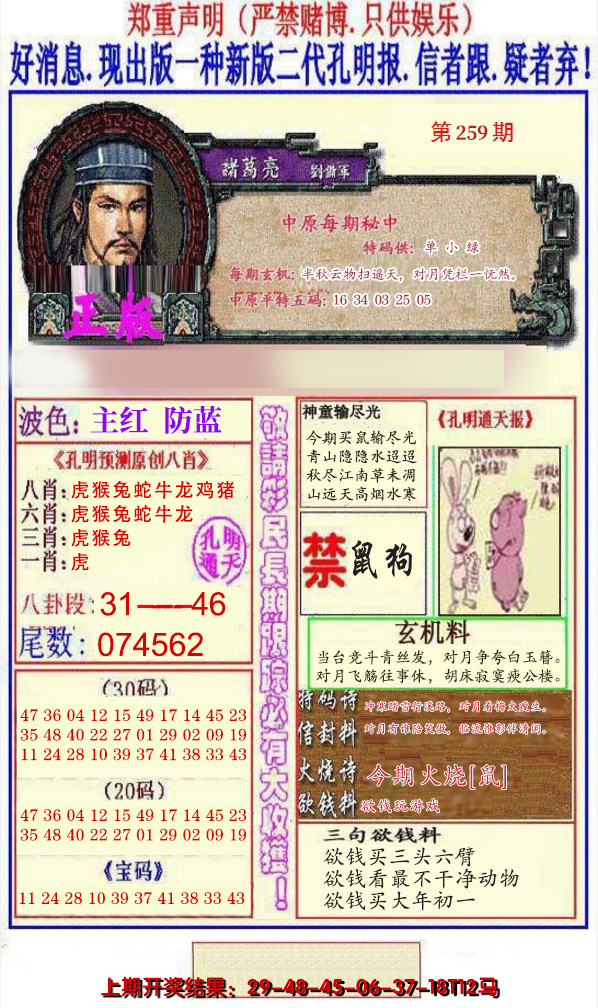 郑重声明（严禁赌博.只供娱乐）
好消息.现出版一种新版二代孔明报.信者跟.疑者弃!
第259期
諸葛亮
劉備軍
中原每期秘中
特码供: 单 小 绿
每期玄机: 半秋云物扫遥天，对月凭栏一怃然。
中原平特五码: 16 34 03 25 05
正版
波色: 主红 防蓝
《孔明预测原创八肖》
八肖: 虎猴兔蛇牛龙鸡猪
六肖: 虎猴兔蛇牛龙
三肖: 虎猴兔
一肖: 虎
孔明
通天
八卦段: 31——46
尾数: 074562
(30码)
47 36 04 12 15 49 17 14 45 23
35 48 40 22 27 01 29 02 09 19
11 24 28 10 39 37 41 38 33 43
(20码)
47 36 04 12 15 49 17 14 45 23
35 48 40 22 27 01 29 02 09 19
《宝码》
11 24 28 10 39 37 41 38 33 43
敬請彩民長期跟踪必有大收獲!
神童输尽光
今期买鼠输尽光
青山隐隐水迢迢
秋尽江南草未凋
山远天高烟水寒
《孔明通天报》
禁 鼠狗
玄机料
当台竞斗青丝发，对月争夸白玉簪。
对月飞觞往事休，胡床寂寞庾公楼。
特码诗 冲寒踏雪行溪路，对月看梅太瘦生。
信封料 对月有谁陪笑傲，临流惟影伴清闲。
火烧诗 今期火烧[鼠]
欲钱料 欲钱玩游戏
三句欲钱料
欲钱买三头六臂
欲钱看最不干净动物
欲钱买大年初一
上期开奖结果：29-48-45-06-37-18T12马